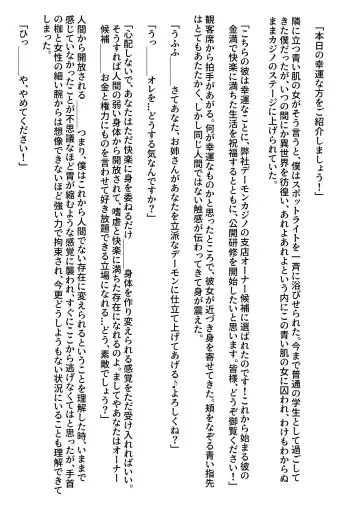 「本日の幸運な方をご紹介しましょう！」
隣に立つ青い肌の女がそう言うと、僕はスポットライトを一斉に浴びせられた。今まで普通の学生として過ごして
きた僕だったが、いつの間にか異世界を彷徨い、あれよあれよという内にこの青い肌の女に囚われ、わけもわからぬ
ままカジノのステージに上げられていた。
「こちらの彼は幸運なことに、弊社デーモンカジノの支店オーナー候補に選ばれたのです！これから始まる彼の
金満で快楽に満ちた生活を祝福するとともに、公開研修を開始したいと思います。皆様、どうぞ御覧ください！」
観客席から拍手があがる。何が幸運なものかと思ったところで、彼女が近づき身を寄せてきた。頬をなぞる青い指先
はとてもあたたかく、しかし同じ人間ではない触感が伝わってきて身が震えた。
「うふふ　　さてあなた、お姉さんがあなたを立派なデーモンに仕立て上げてあげる♪よろしくね？」
「うっ　　オレを…どうする気なんですか？」
「心配しないで、あなたはただ快楽に身を委ねるだけ　　身体を作り変えられる感覚をただ受け入れればいい。
そうすれば人間の弱い身体から開放されて、嗜虐と快楽に満ちた存在になれるのよ。ましてやあなたはオーナー
候補　　お金と権力にものを言わせて好き放題できる立場になれる…どう、素敵でしょう？」
人間から開放される　　つまり、僕はこれから人間でない存在に変えられるということを理解した時、いままで
感じていなかったことが不思議なほど胃が縮むような感覚に襲われ、すぐにここから逃げなくてはと思ったが、手首
の枷と女性の細い腕からは想像できないほど強い力で拘束され、今更どうしようもない状況にいることも理解できて
しまった。
「ひっ　　や、やめてください！」